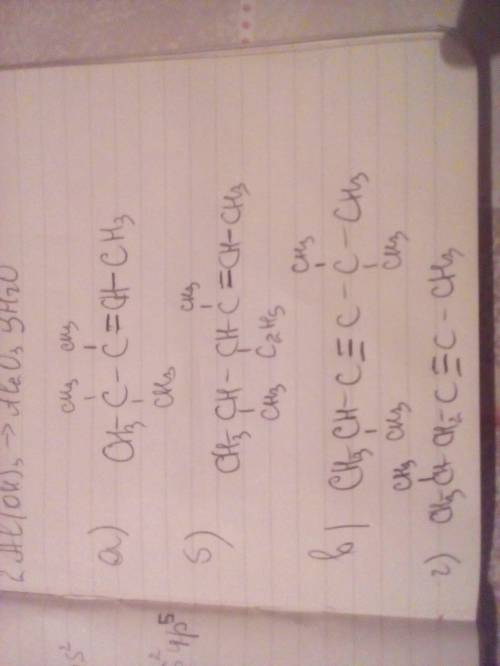 2 Al(OH)3 → Al2O3 3H2O
s2
s2 4p5
а)
CH3 CH3
CH3 – C – C = CH – CH3
CH3
б)
CH3
CH3 – CH – CH – C = CH – CH3
CH3 C2H5
в)
CH3
CH3 – CH – C ≡ C – C – CH3
CH3 CH3
г)
CH3
CH3 CH CH2 – C ≡ C – CH3